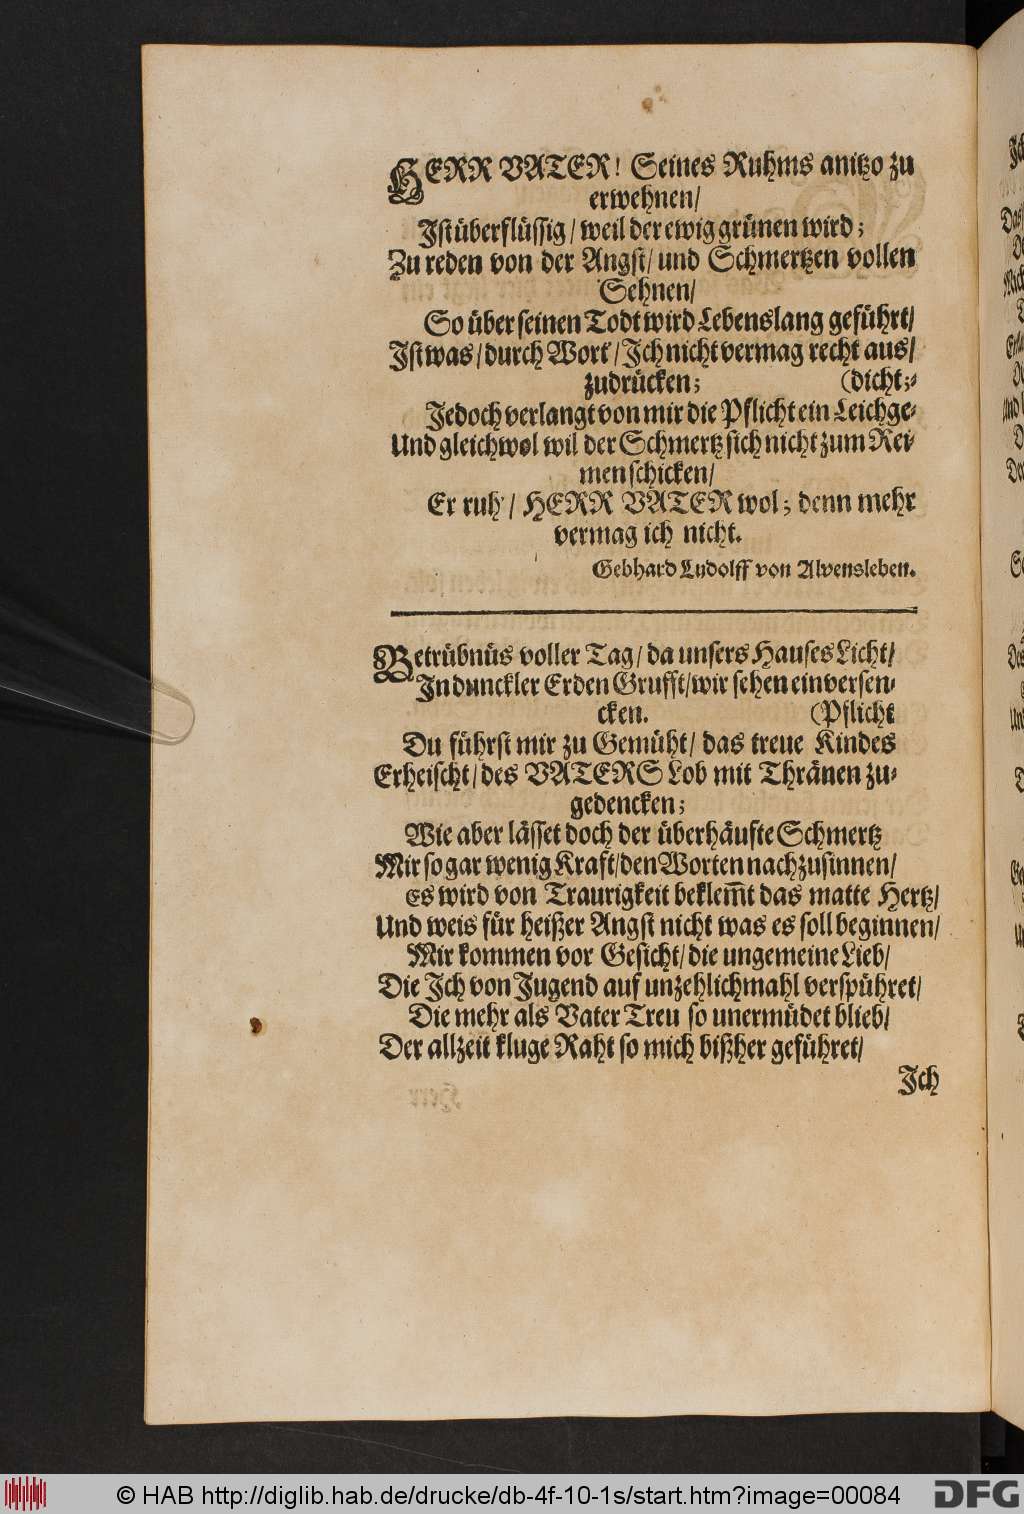 HERR VATER! Seines Ruhms anitzo zu
erwehnen/
Ist überflüssig/ weil der ewig grünen wird;
Zu reden von der Angst/ und Schmertzen vollen
Sehnen/
So über seinen Todt wird Lebenslang geführt/
Ist was/ durch Wort/ Ich nicht vermag recht aus/
zudrücken; (dicht;⸗
Jedoch verlangt von mir die Pflicht ein Leichge⸗
Und gleichwol wil der Schmertz sich nicht zum Rei⸗
men schicken/
Er ruh/ HERR VATER wol; denn mehr
vermag ich nicht.
Gebhard Ludolff von Alvensleben.
Betrübnüs voller Tag/ da unsers Hauses Licht/
In dunckler Erden Grufft/ wir sehen ein versen⸗
cken. (Pflicht
Du führst mir zu Gemüht/ das treue Kindes
Erheischt/ des VATERS Lob mit Thränen zu⸗
gedencken;
Wie aber lässet doch der überhäufte Schmertz
Mir so gar wenig Kraft/ den Worten nachzusinnen/
Es wird von Traurigkeit beklem̅t das matte Hertz/
Und weis für heißer Angst nicht was es soll beginnen/
Mir kommen vor Gesicht/ die ungemeine Lieb/
Die Ich von Jugend auf unzehlichmahl verspühret/
Die mehr als Vater Treu so unermüdet blieb/
Der allzeit kluge Raht so mich bißher geführet/
Ich
© HAB http://diglib.hab.de/drucke/db-4f-10-1s/start.htm?image=00084
DFG